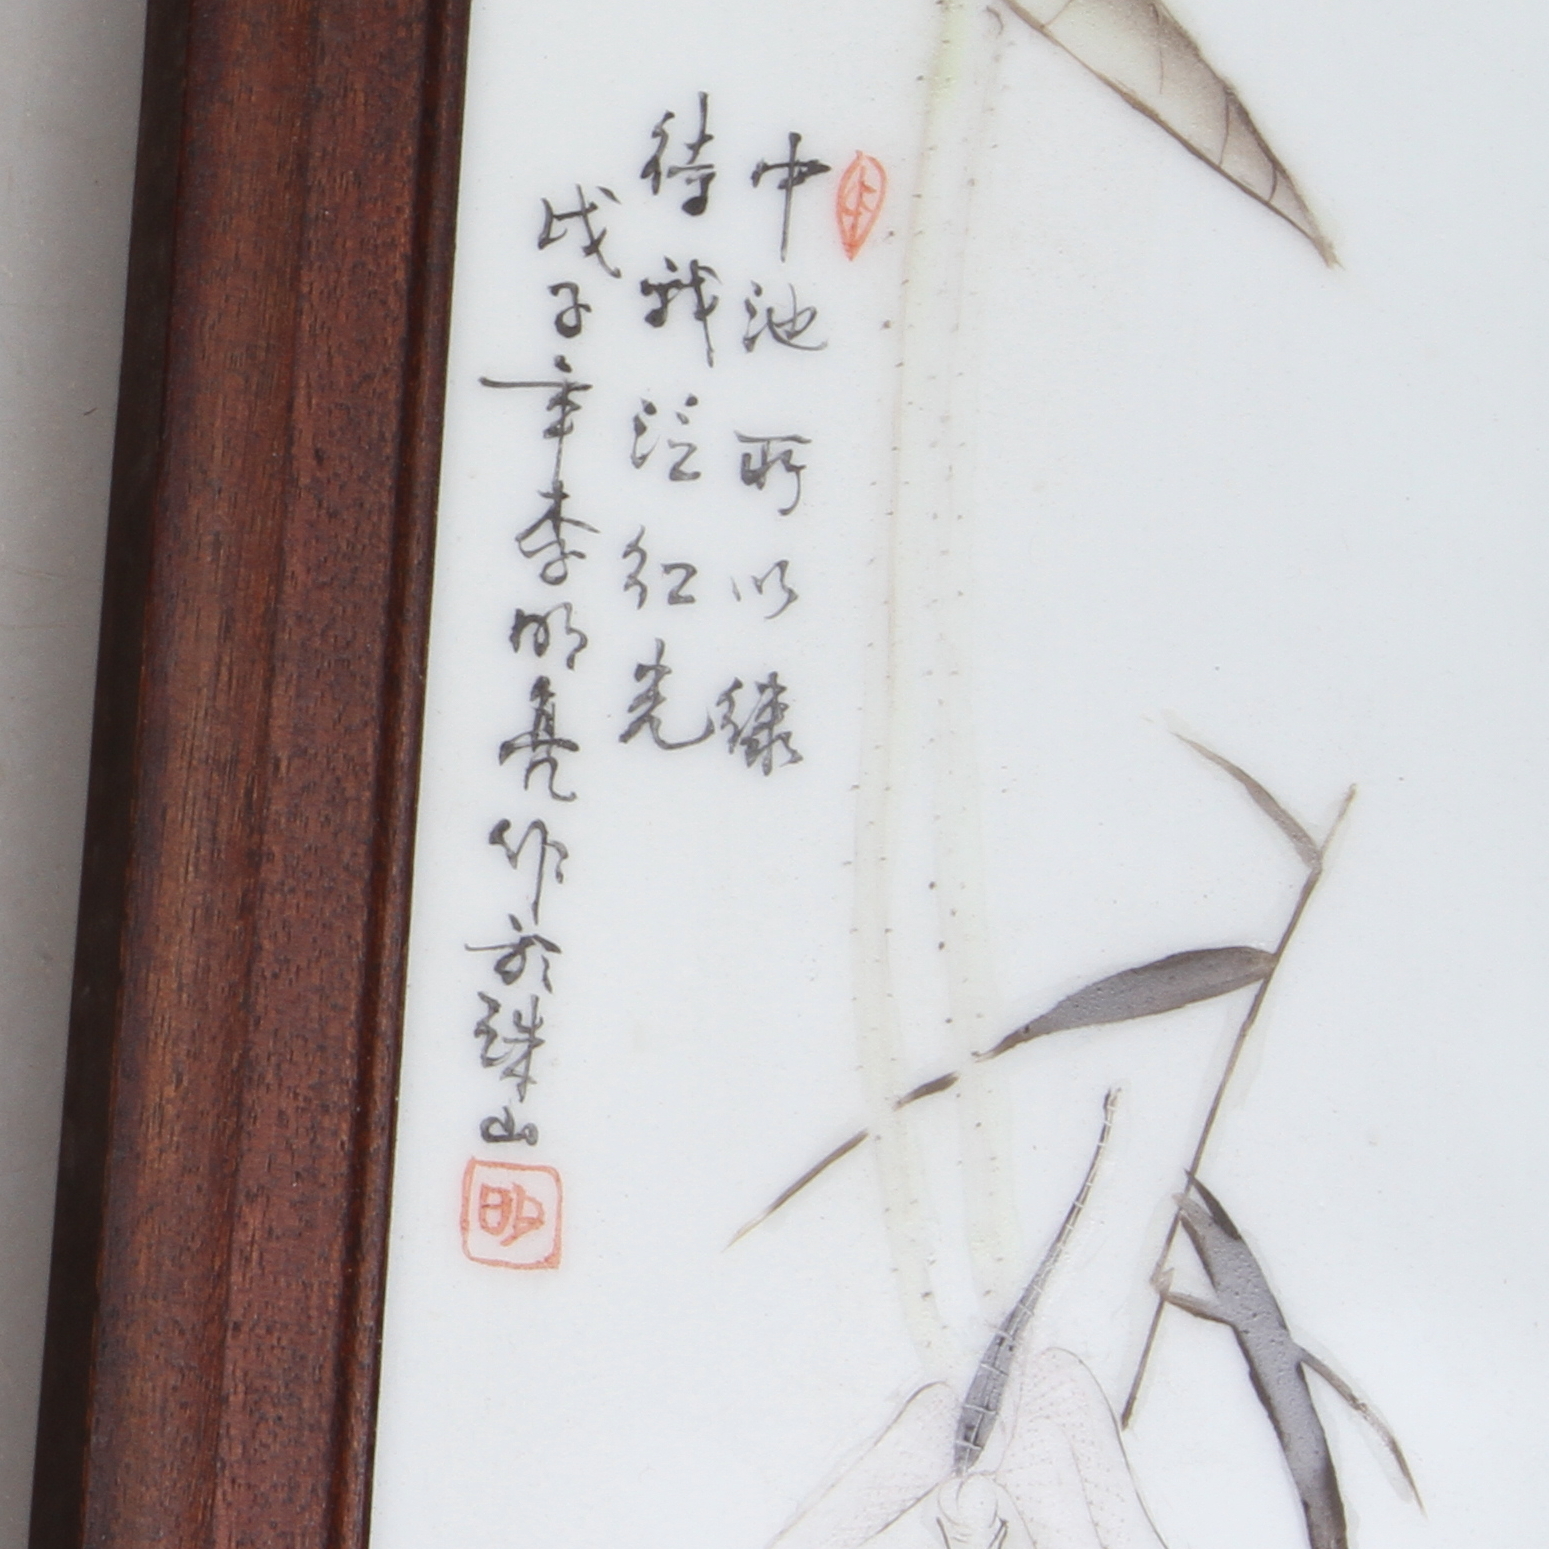 中池所以綠
待我泛红光
戊子年李明亮作於珠山
明